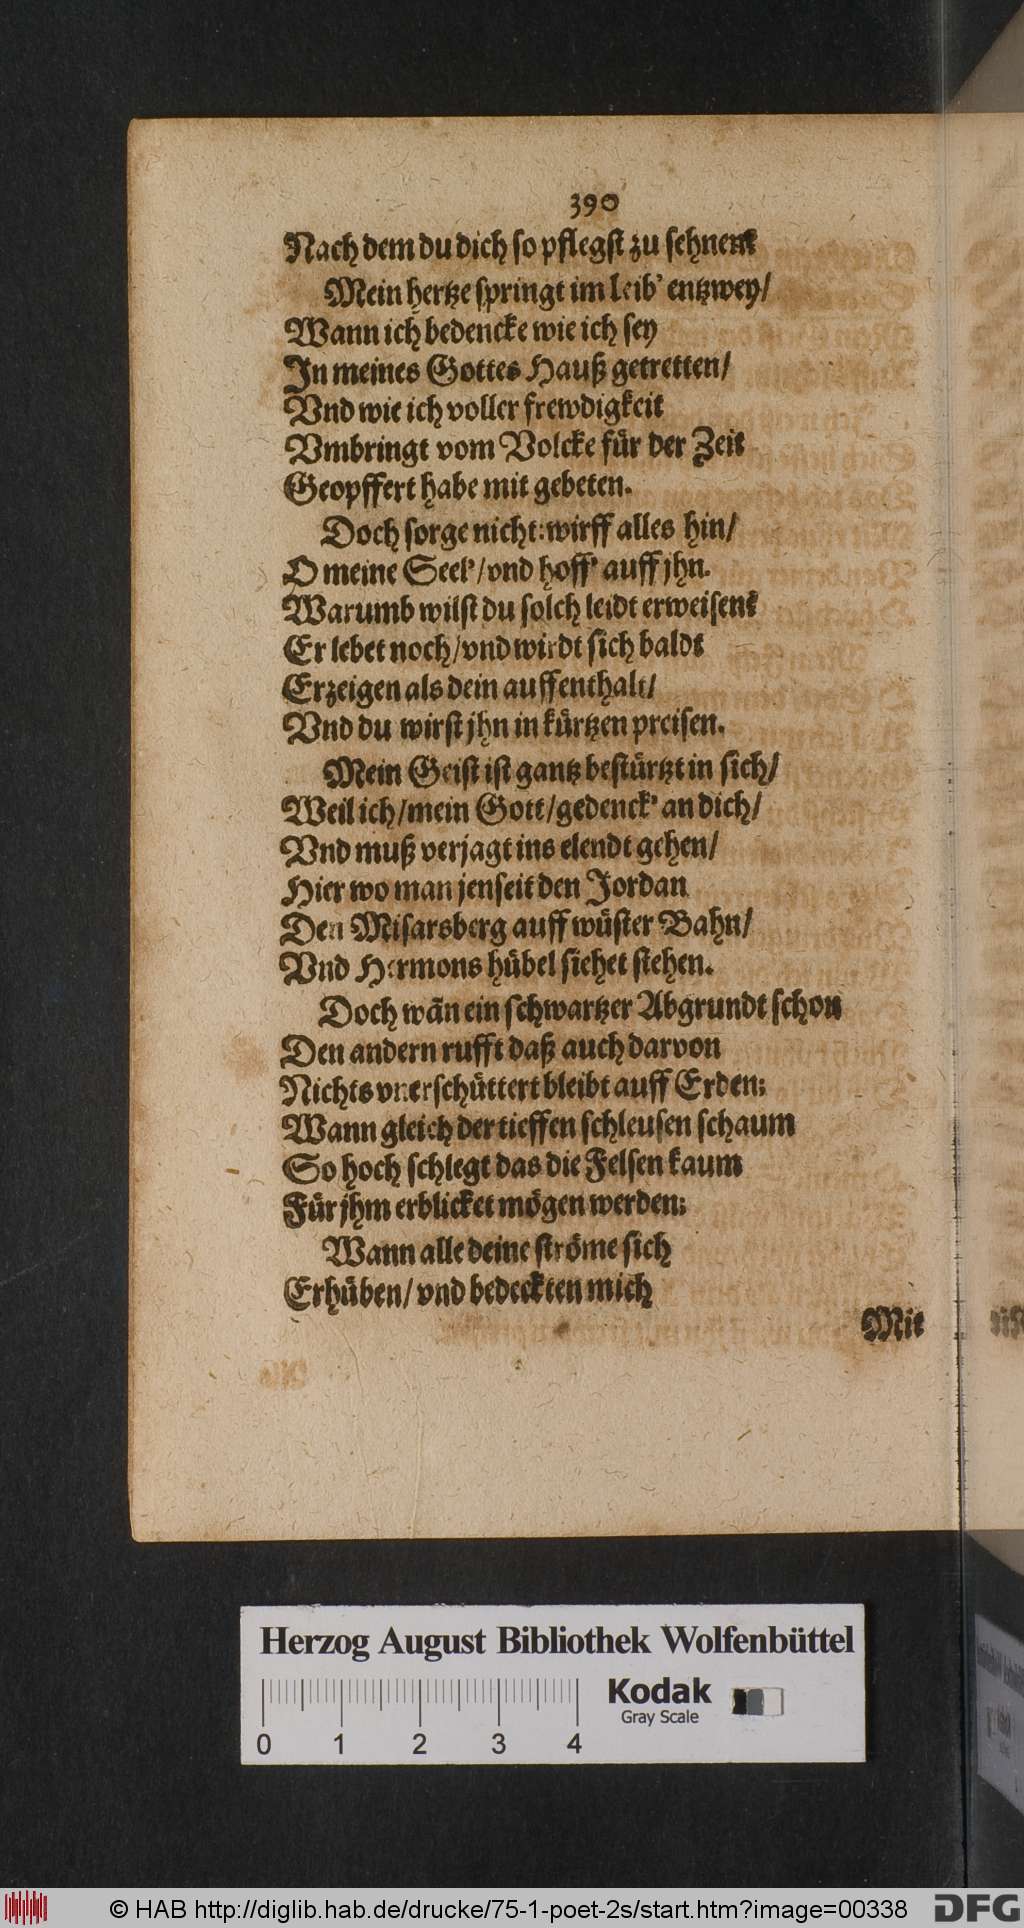 390
Nach dem du dich so pflegst zu sehnen?
Mein hertze springt im leib' entzwey/
Wann ich bedencke wie ich sey
In meines Gottes Hauß getretten/
Vnd wie ich voller frewdigkeit
Vmbringt vom Volcke für der Zeit
Geopffert habe mit gebeten.
Doch sorge nicht: wirff alles hin/
O meine Seel'/ vnd hoff' auff jhn.
Warumb wilst du solch leidt erweisen?
Er lebet noch/ vnd wirdt sich baldt
Erzeigen als dein auffenthalt/
Vnd du wirst jhn in kürtzen preisen.
Mein Geist ist gantz bestürtzt in sich/
Weil ich/ mein Gott/ gedenck' an dich/
Vnd muß verjagt ins elendt gehen/
Hier wo man jenseit den Jordan
Den Misarsberg auff wüster Bahn/
Vnd Hermons hübel siehet stehen.
Doch wān ein schwartzer Abgrundt schon
Den andern rufft daß auch darvon
Nichts vnerschüttert bleibt auff Erden;
Wann gleich der tieffen schleusen schaum
So hoch schlegt das die Felsen kaum
Für jhm erblicket mögen werden;
Wann alle deine ströme sich
Erhüben/ vnd bedeckten mich
Mit
Herzog August Bibliothek Wolfenbüttel
Kodak
Gray Scale
0 1 2 3 4
© HAB http://diglib.hab.de/drucke/75-1-poet-2s/start.htm?image=00338
DFG